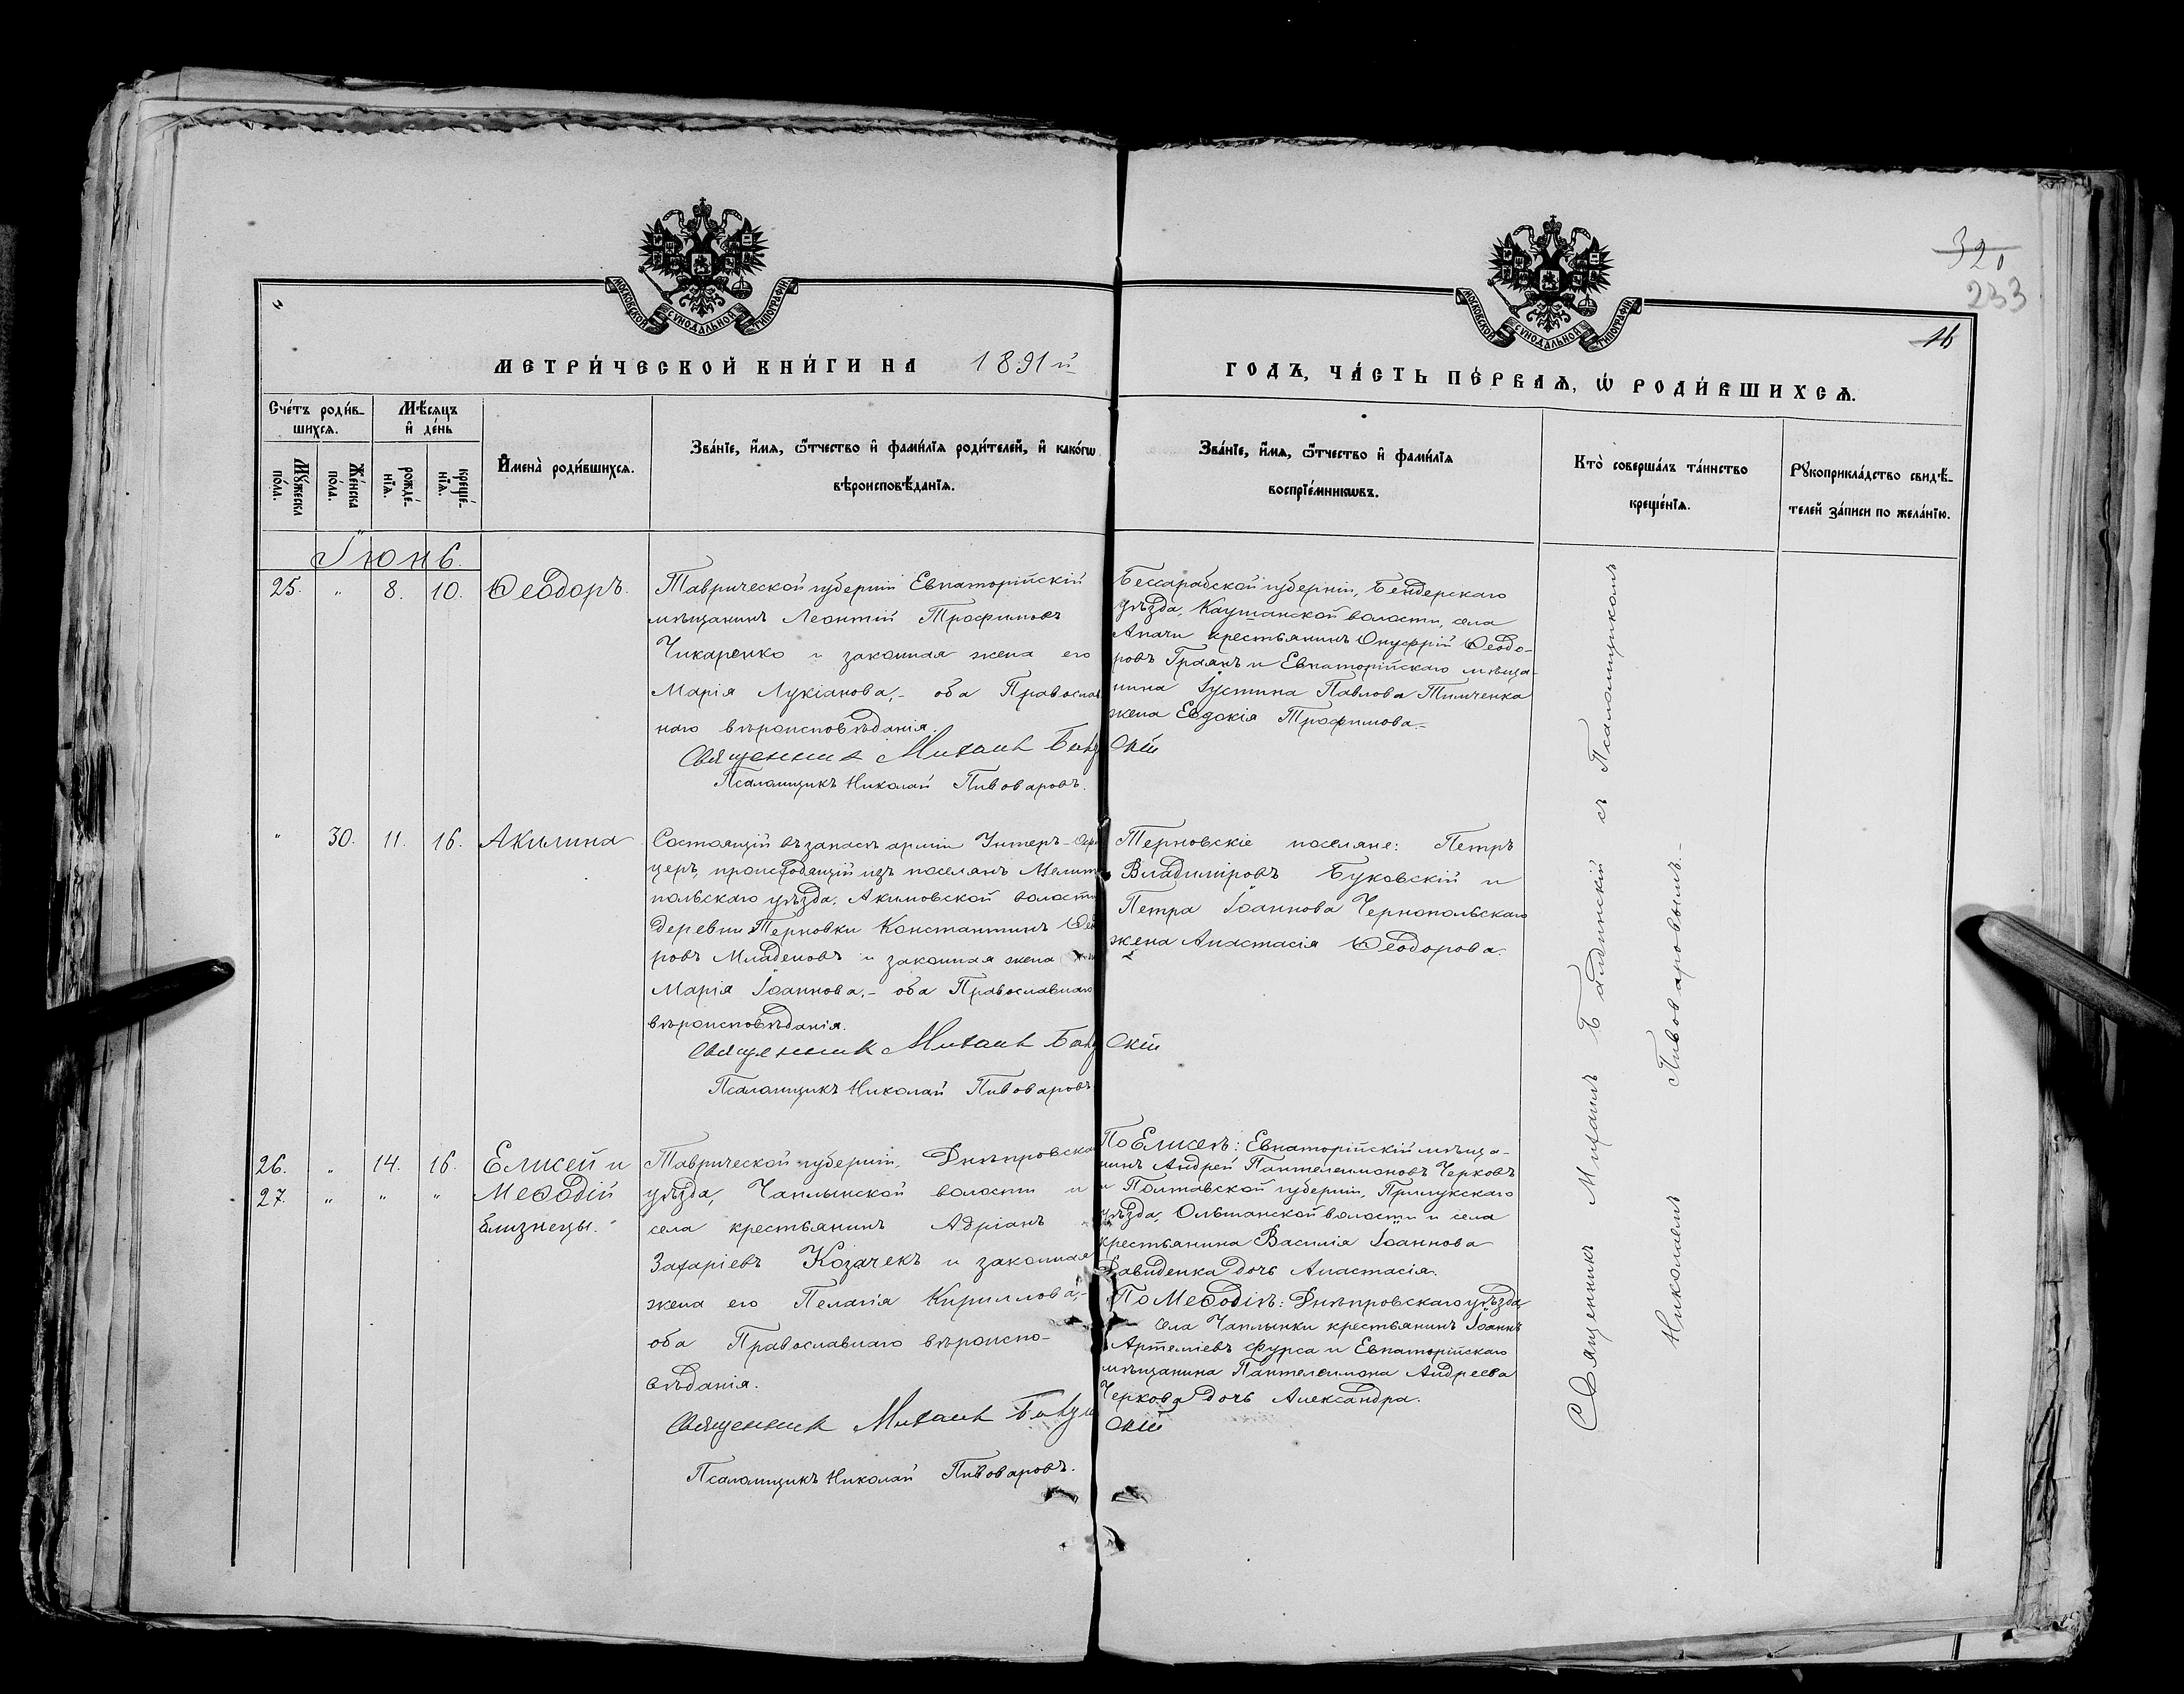 32
233
16
МОСКОВСКОЙ СѴНОДАЛЬНОЙ ТИПОГРАФІИ
МОСКОВСКОЙ СѴНОДАЛЬНОЙ ТИПОГРАФІИ
МЕТРИ́ЧЕСКОЙ КНИ́ГИ НА 1891 й
ГОДЪ, ЧА́СТЬ ПЕ́РВАѦ, Ѡ РОДИ́ВШИХСѦ.
Сче́тъ роди́в-
шихсѧ.
Мѣ́сѧцъ
и де́нь
Мꙋ́жеска по́ла.
Же́нска по́ла.
рожде́-
нїѧ.
креще́-
нїѧ.
Имена̀ роди́вшихсѧ.
Зва́нїе, и́мѧ, ѻ́тчество и фами́лїѧ роди́телей, и како́гѡ
вѣроисповѣ́данїѧ.
Зва́нїе, и́мѧ, ѻ́тчество и фами́лїѧ
воспрїе́мникѡвъ.
Кто̀ соверша́лъ та́инство
креще́нїѧ.
Рꙋкоприкла́дство свидѣ́-
телей за́писи по жела́нїю.
Іюнь.
25. " 8. 10. Ѳеодоръ.
Таврической губерніи Евпаторійскій
мѣщанинъ Леонтій Трофимовъ
Чикаренко и законная жена его
Марія Лукіанова,- оба Православ
наго вѣроисповѣданія.
Священник Михаил Банд
скій
Псаломщикъ Николай Пивоваровъ.
Бессарабской губерніи, Бендерскаго
уѣзда, Каушанской волости, села
Опачи крестьянинъ Онуфрій Ѳеодо-
ровъ Граянъ и Евпаторійскаго мѣща-
нина Іустина Павлова Тимченка
жена Евдокія Трофимова.-
" 30. 11. 16. Акилина
Состоящій въ запасѣ арміи Унтеръ-Офи
церъ, происходящій изъ поселянъ Мелито
польскаго уѣзда, Акимовской волости
деревни Терновки Константинъ Ѳео
ровъ Младеновъ и законная жена
Марія Іоаннова,- оба Православнаго
вѣроисповѣданія.
Священник Михаил Банд
скій
Псаломщикъ Николай Пивоваровъ
Терновскіе поселяне: Петръ
Владиміровъ Буковскій и
Петра Іоаннова Чернопольскаго
жена Анастасія Ѳеодорова.
26. " 14. 16. Елисей и
27. " " " Меѳодій
близнецы.
Таврической губерніи, Днѣпровска
уѣзда, Чаплынской волости и
села крестьянинъ Адріанъ
Захаріевъ Козачекъ и законная
жена его Пелагія Кириллова,-
оба Православнаго вѣроиспо-
вѣданія.
Священник Михаил Бандин
скій
Псаломщикъ Николай Пивоваровъ.
По Елисеѣ: Евпаторійскій мѣща-
нинъ Андрей Пантелеимоновъ Черковъ
и Полтавской губерніи, Прилукскаго
уѣзда, Ольшанской волости и села
крестьянина Василія Іоаннова
Давиденка дочь Анастасія.
По Меѳодіѣ: Днѣпровскаго уѣзда
села Чаплынки крестьянинъ Іоаннъ
Артеміевъ Фурса и Евпаторійскаго
мѣщанина Пантелеимона Андреева
Черкова дочь Александра.
Священникъ Михаилъ Бандинскій съ Псаломщикомъ
Николаемъ Пивоваровымъ.-